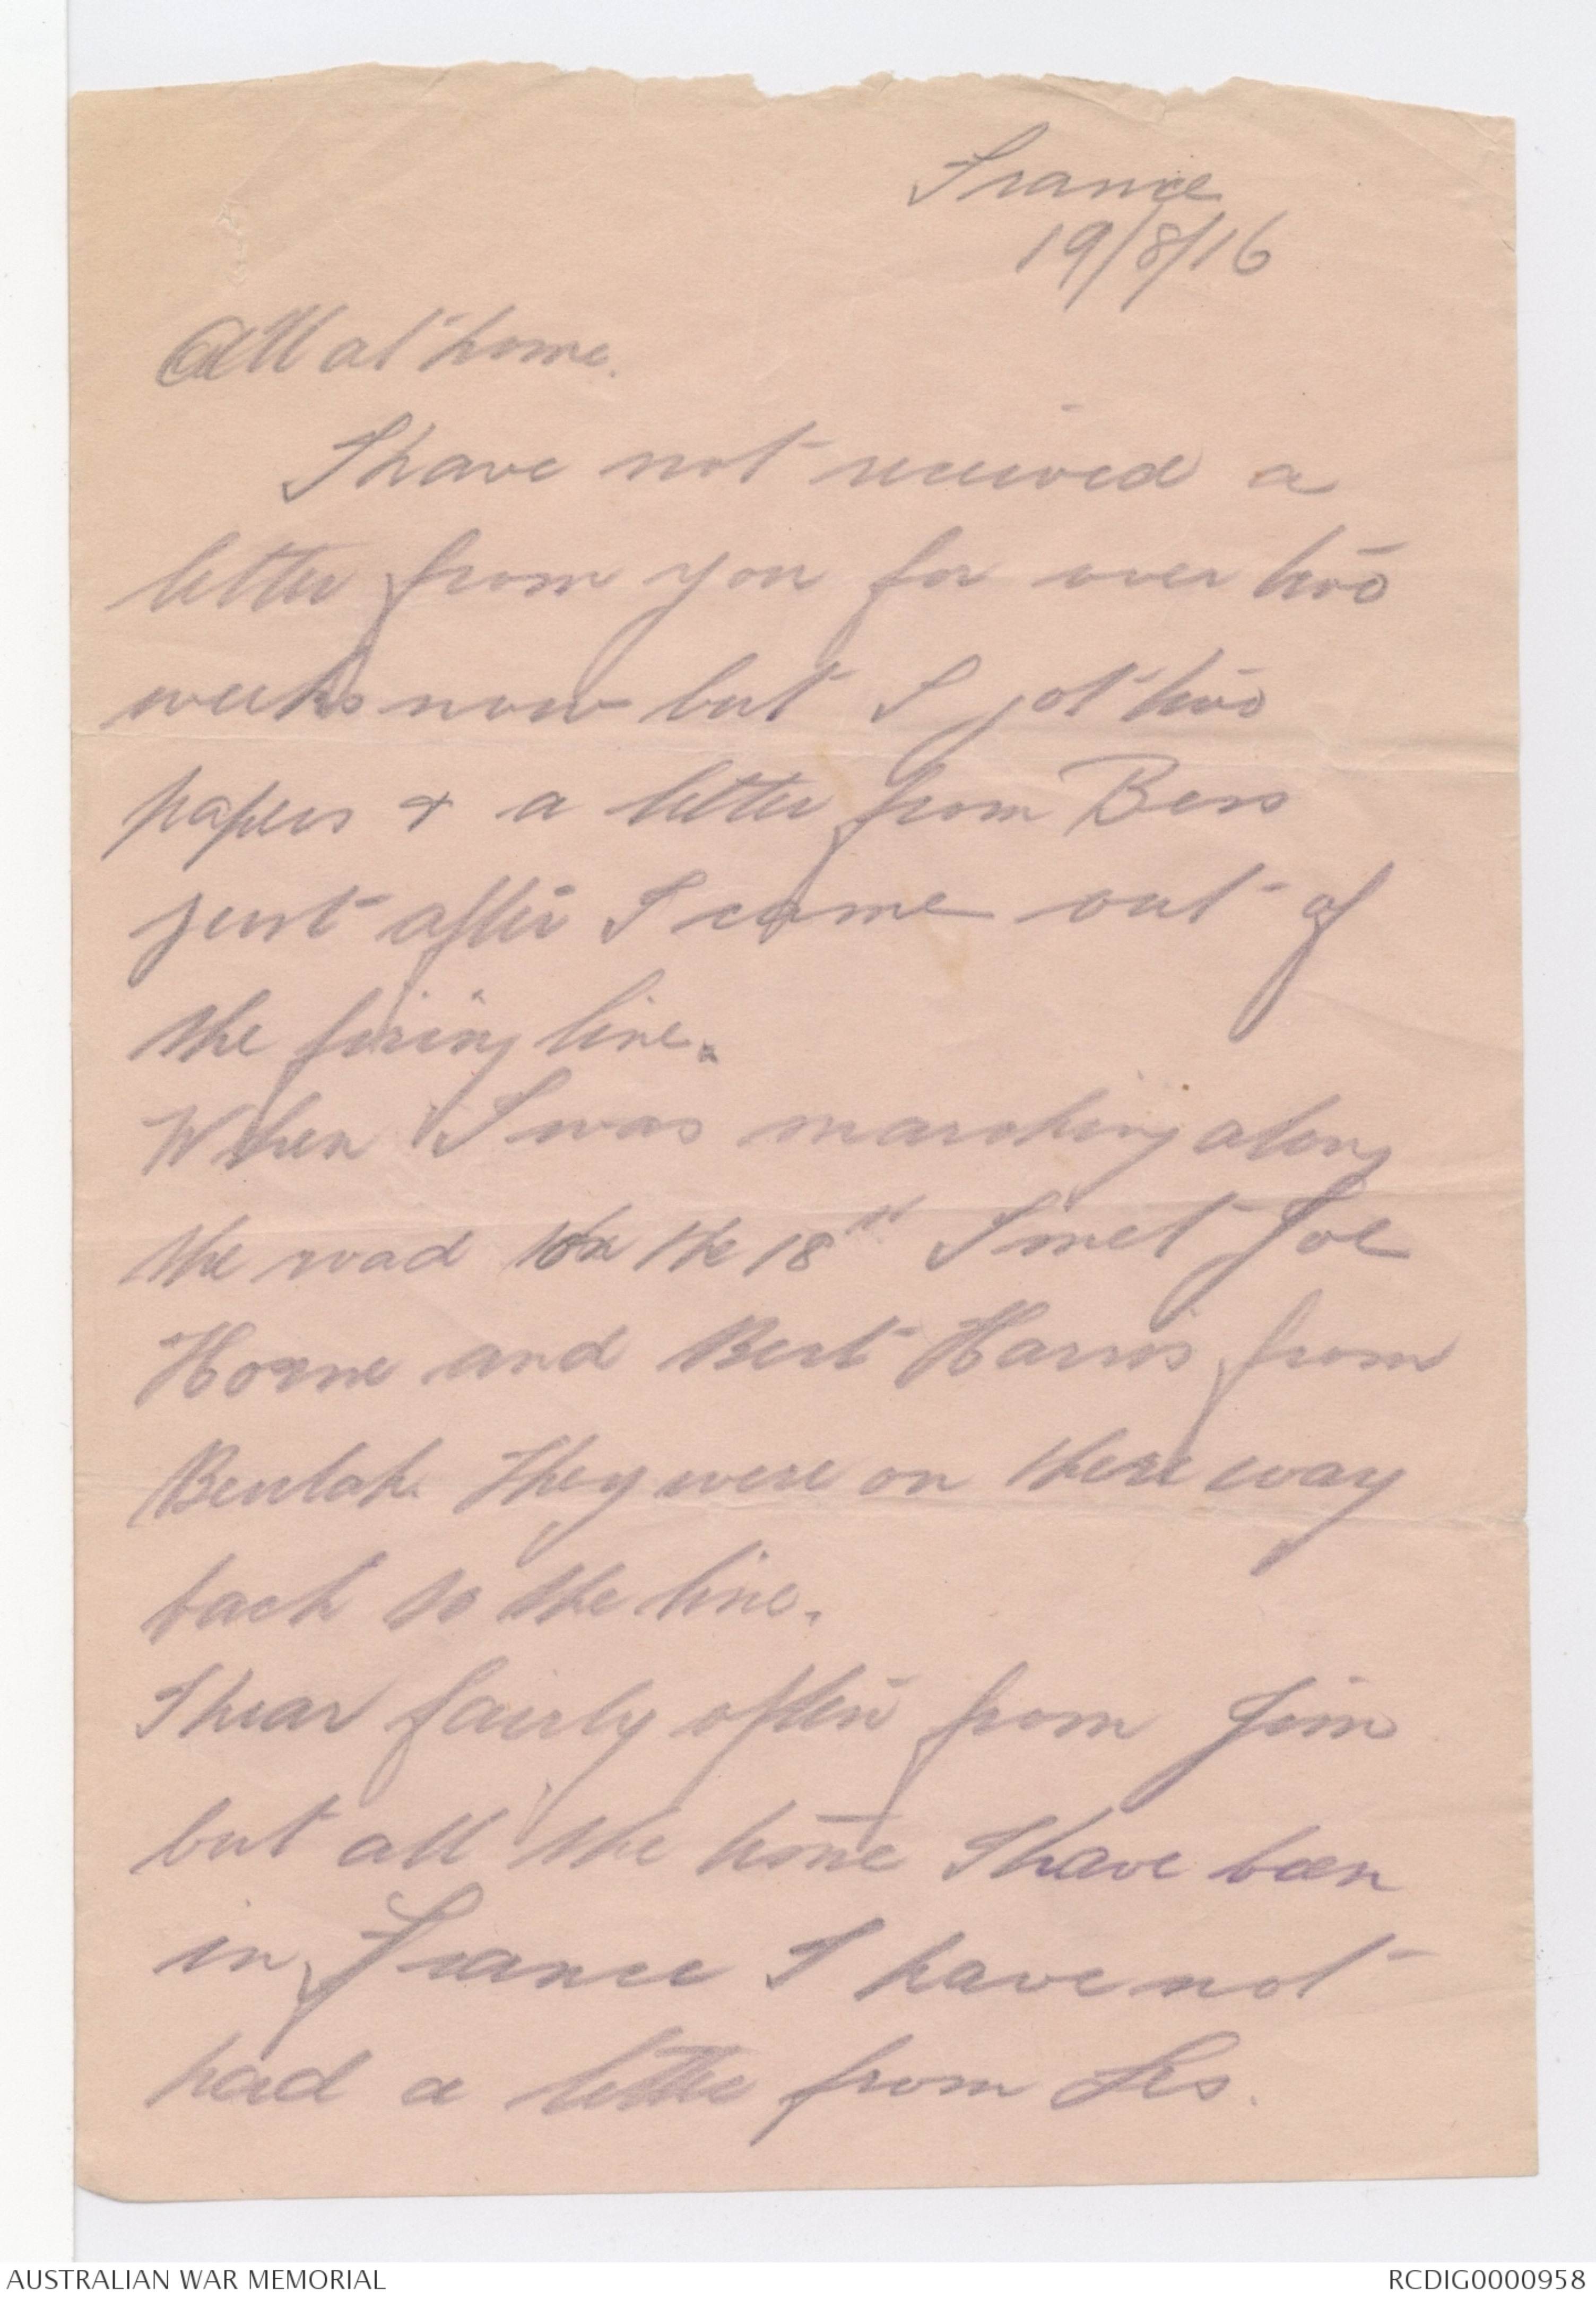 France
19/8/16
All at home.
I have not received a
letter from you for over two
weeks now but I got two
papers & a letter from Bess
just after I came out of
the firing line.
When I was marching along
the road on the 18th I met Joe
Horne and Bert Harris from
Beulah. They were on there way
back to the line.
I hear fairly often from Jim
but all the time I have been
in France I have not
had a letter from Les.
AUSTRALIAN WAR MEMORIAL
RCDIG0000958